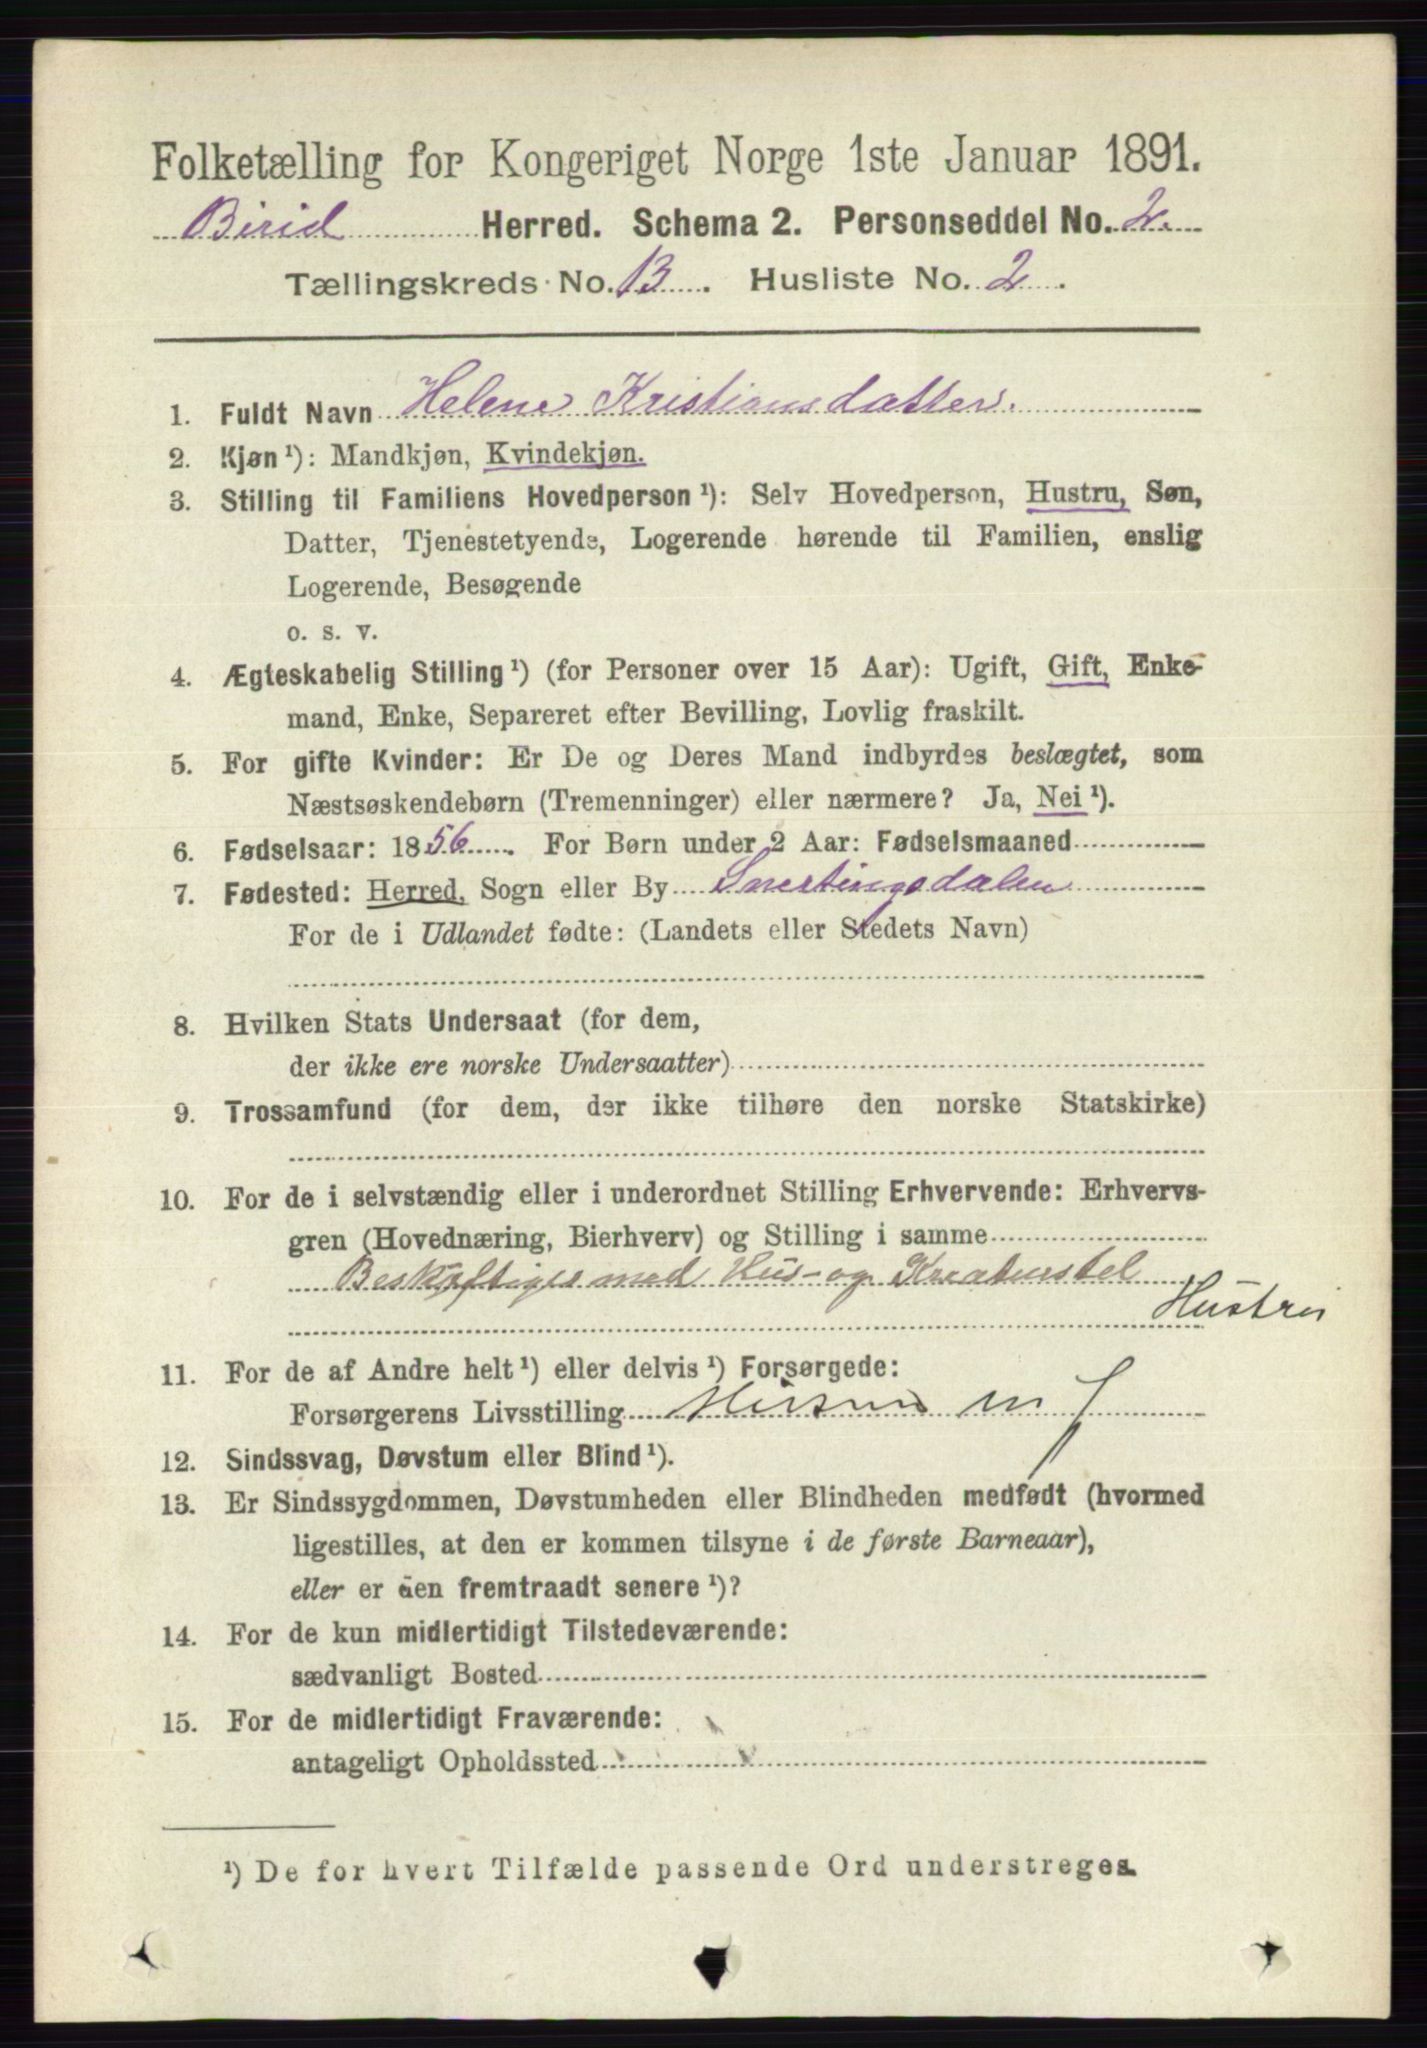 Folketælling for Kongeriget Norge 1ste Januar 1891.
Birid Herred. Schema 2. Personseddel No. 2.
Tællingskreds No. 13. Husliste No. 2.
1. Fuldt Navn Helene Kristiansdatter.
2. Kjøn ¹): Mandkjøn, Kvindekjøn.
3. Stilling til Familiens Hovedperson ¹): Selv Hovedperson, Hustru, Søn,
Datter, Tjenestetyende, Logerende hørende til Familien, enslig
Logerende, Besøgende
o. s. v.
4. Ægteskabelig Stilling ¹) (for Personer over 15 Aar): Ugift, Gift, Enke-
mand, Enke, Separeret efter Bevilling, Lovlig fraskilt.
5. For gifte Kvinder: Er De og Deres Mand indbyrdes beslægtet, som
Næstsøskendebørn (Tremenninger) eller nærmere? Ja, Nei ¹).
6. Fødselsaar: 1856. For Børn under 2 Aar: Fødselsmaaned
7. Fødested: Herred, Sogn eller By Snertingsdalen
For de i Udlandet fødte: (Landets eller Stedets Navn)
8. Hvilken Stats Undersaat (for dem,
der ikke ere norske Undersaatter)
9. Trossamfund (for dem, der ikke tilhøre den norske Statskirke)
10. For de i selvstændig eller i underordnet Stilling Erhvervende: Erhvervs-
gren (Hovednæring, Bierhverv) og Stilling i samme
Beskjæftiges med Hus- og Kreaturstel
Hustru
11. For de af Andre helt ¹) eller delvis ¹) Forsørgede:
Forsørgerens Livsstilling m
12. Sindssvag, Døvstum eller Blind ¹).
13. Er Sindssygdommen, Døvstumheden eller Blindheden medfødt (hvormed
ligestilles, at den er kommen tilsyne i de første Barneaar),
eller er den fremtraadt senere ¹)?
14. For de kun midlertidigt Tilstedeværende:
sædvanligt Bosted
15. For de midlertidigt Fraværende:
antageligt Opholdssted
¹) De for hvert Tilfælde passende Ord understreges.